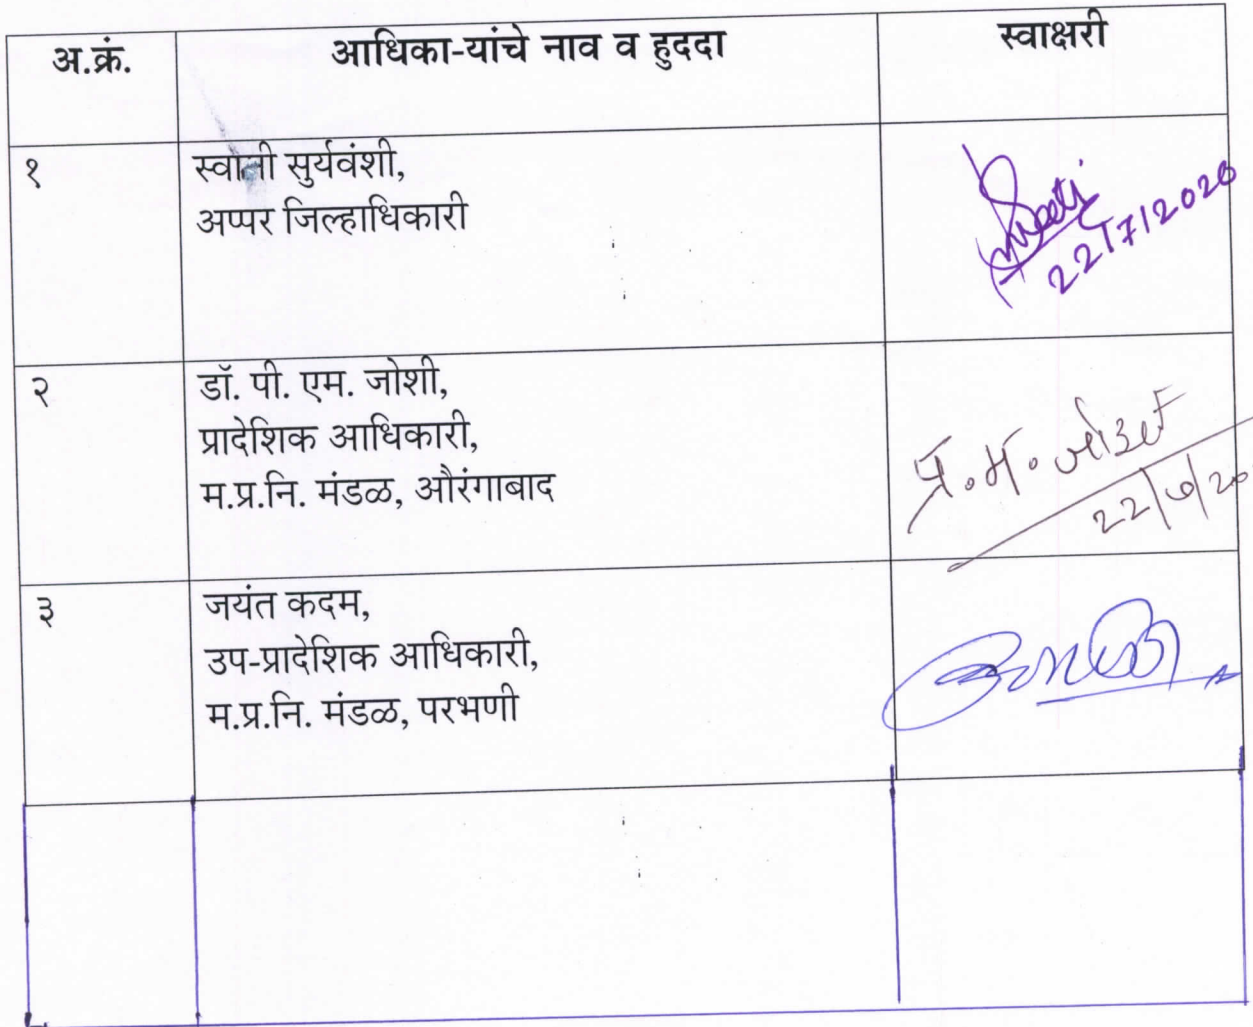 अ.क्रं. आधिका-यांचे नाव व हुददा स्वाक्षरी
१ स्वाती सुर्यवंशी,
अप्पर जिल्हाधिकारी
22/7/2020
२ डॉ. पी. एम. जोशी,
प्रादेशिक आधिकारी,
म.प्र.नि. मंडळ, औरंगाबाद
प्र.म.जोशी
22/७/20
३ जयंत कदम,
उप-प्रादेशिक आधिकारी,
म.प्र.नि. मंडळ, परभणी